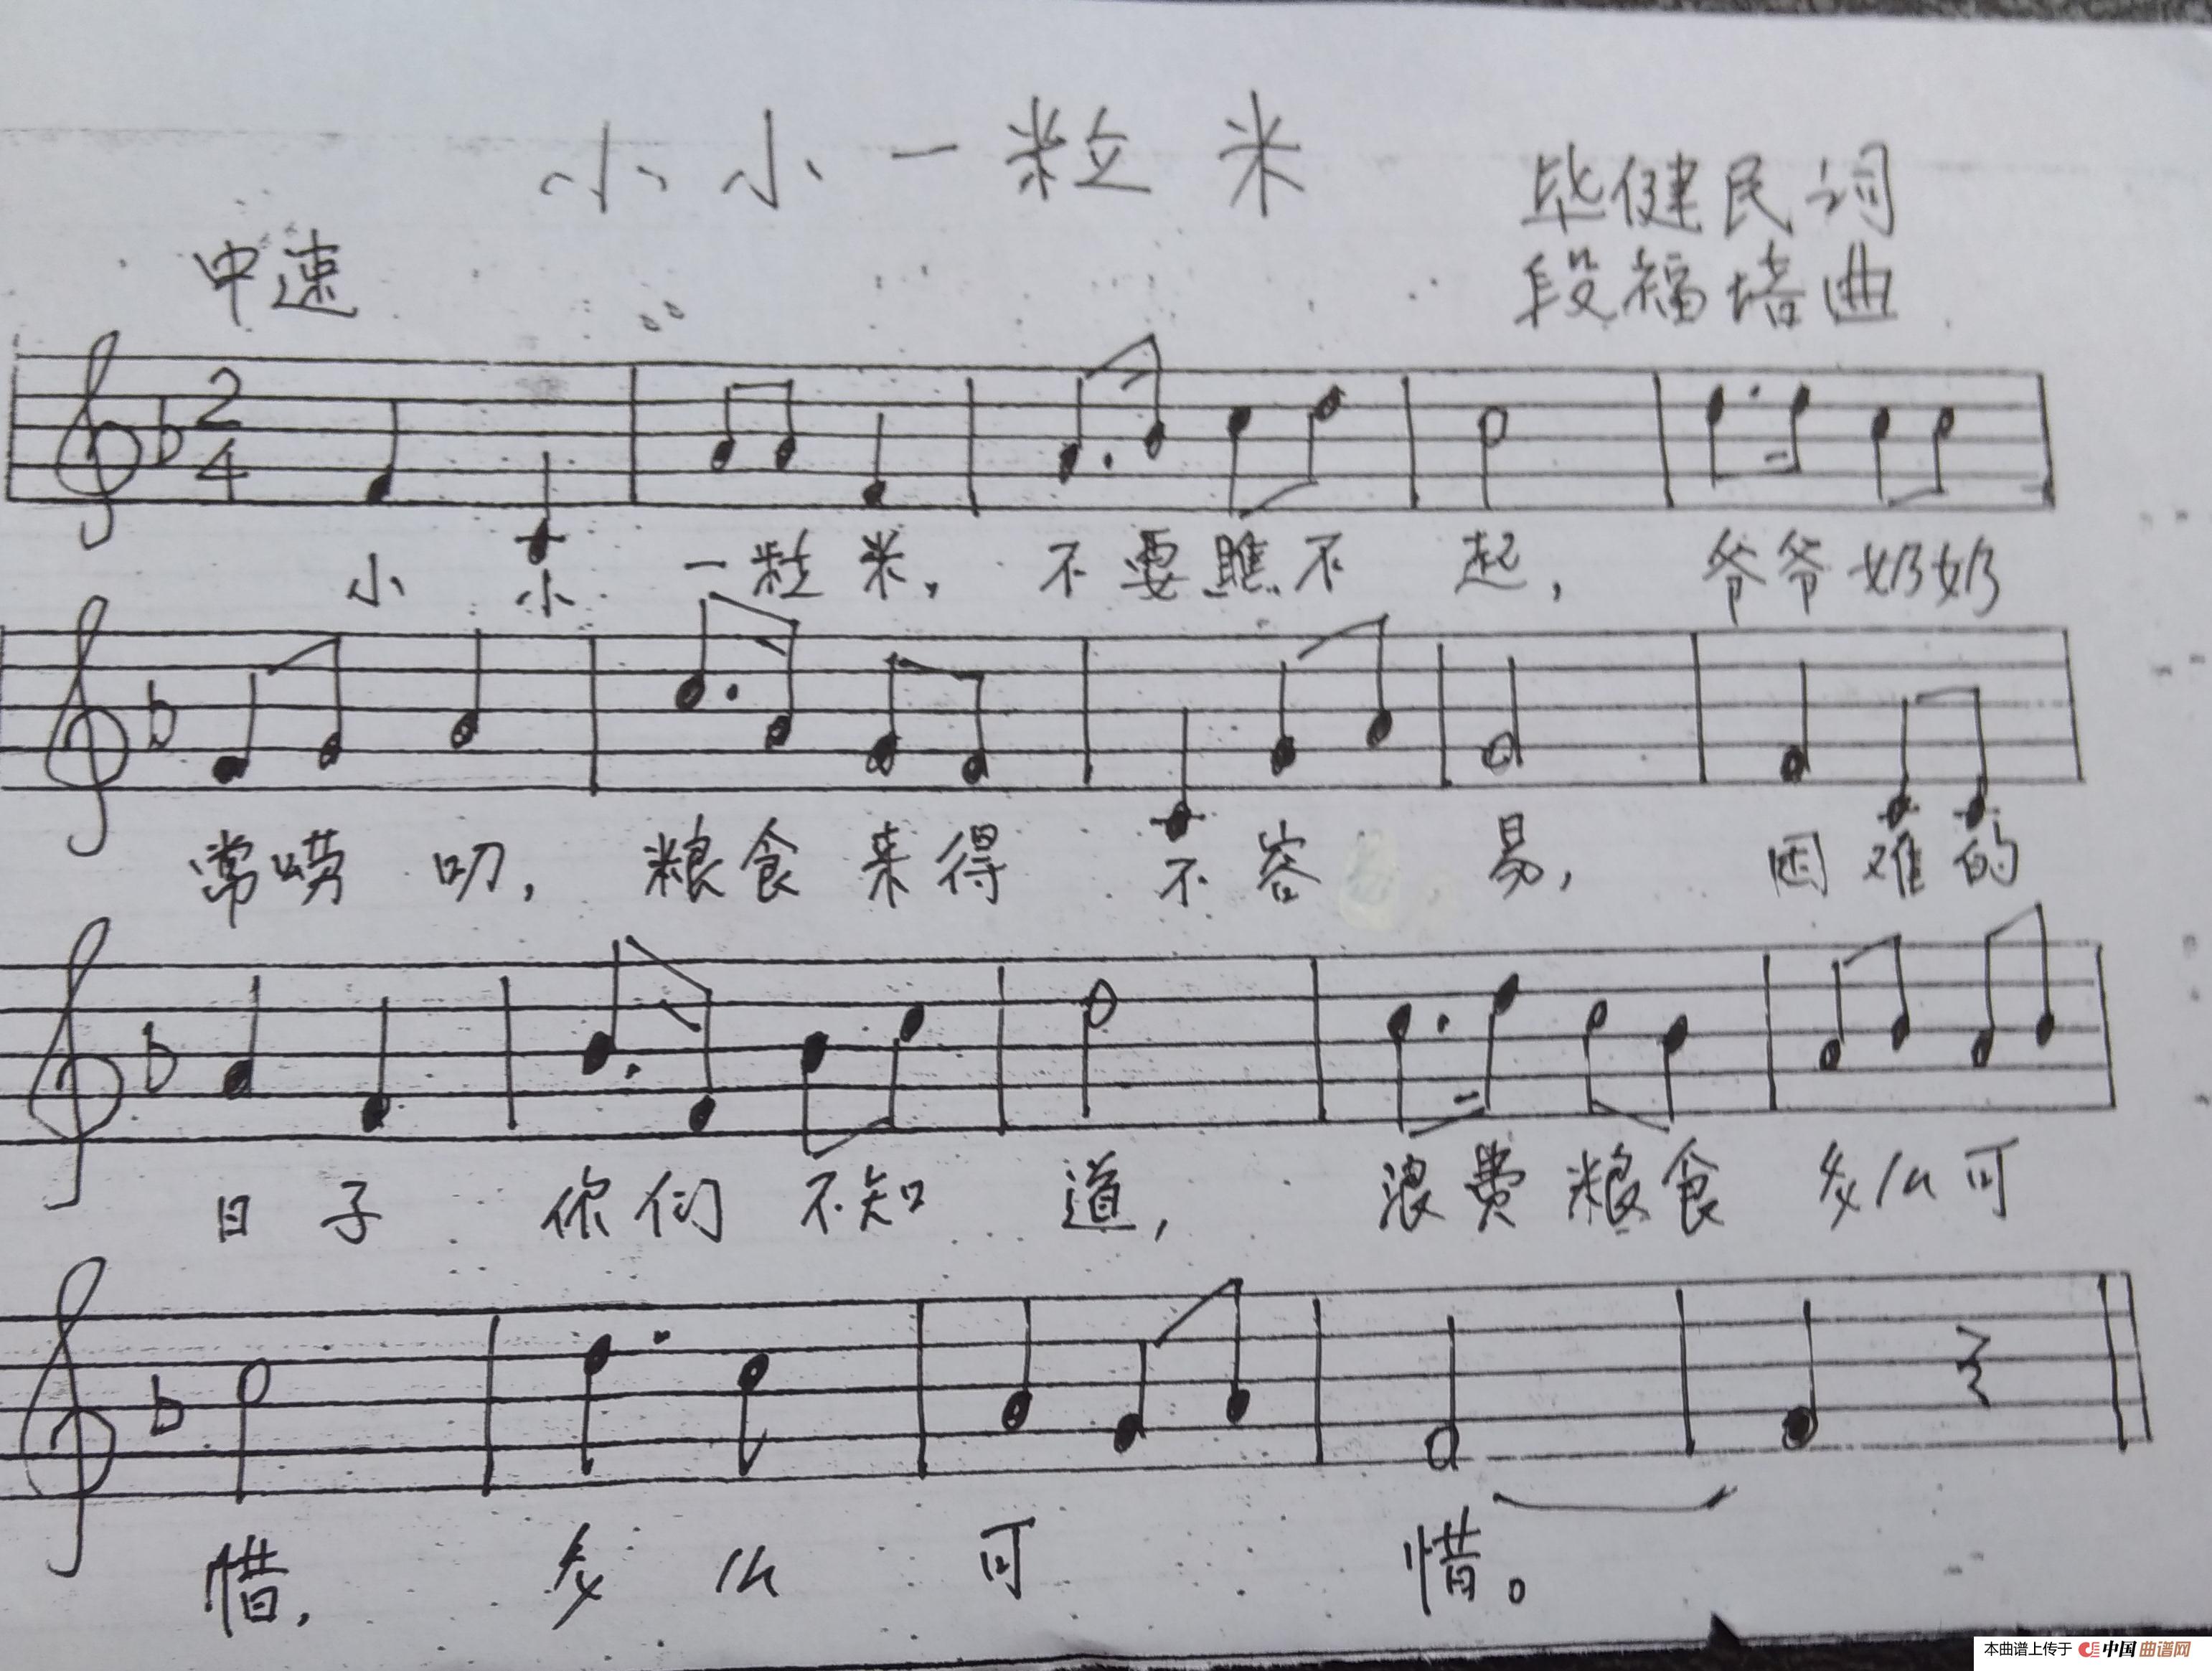 小小一粒米
毕健民词
中速
段福培曲
2
4
小 小 一粒 米, 不要瞧不 起, 爷爷奶奶
常唠 叨, 粮食来得 不容 易, 困难的
日子 你们不知 道, 浪费粮食 多么可
惜, 多么 可 惜。
本曲谱上传于 中国曲谱网